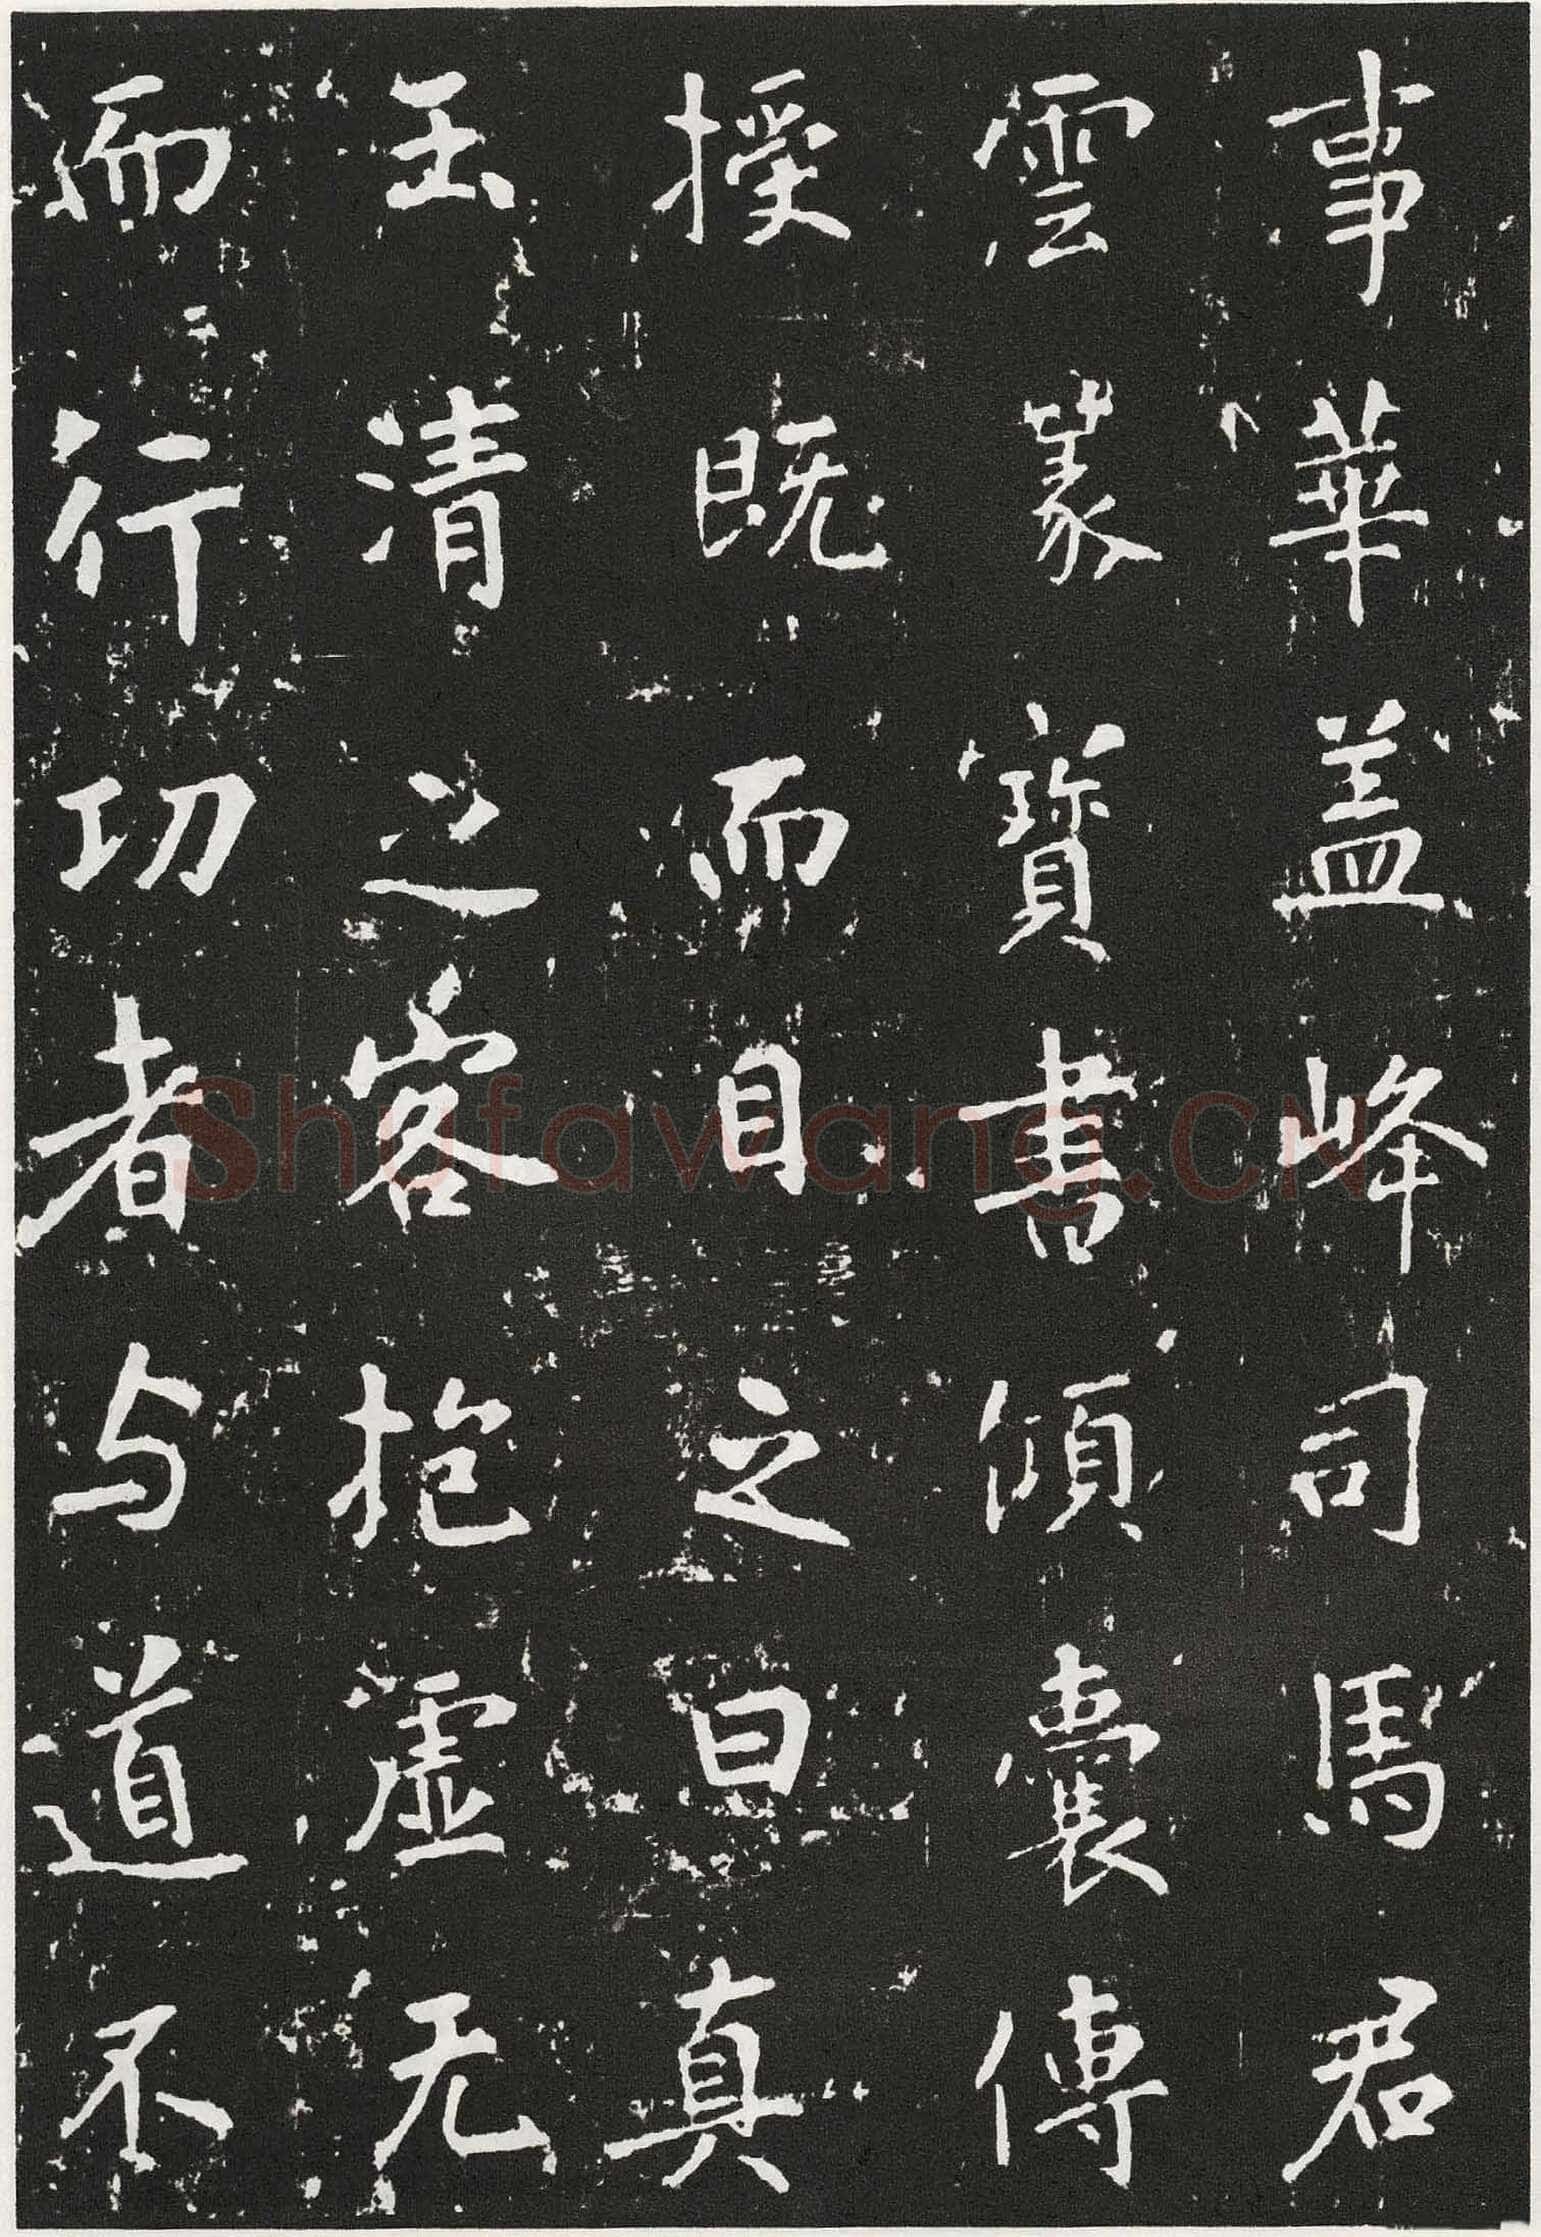 事華盖峰司馬君
雲篆寶書傾囊傳
授既而目之曰真
玉清之客抱虚无
而行功者与道不
Shufawang.CN